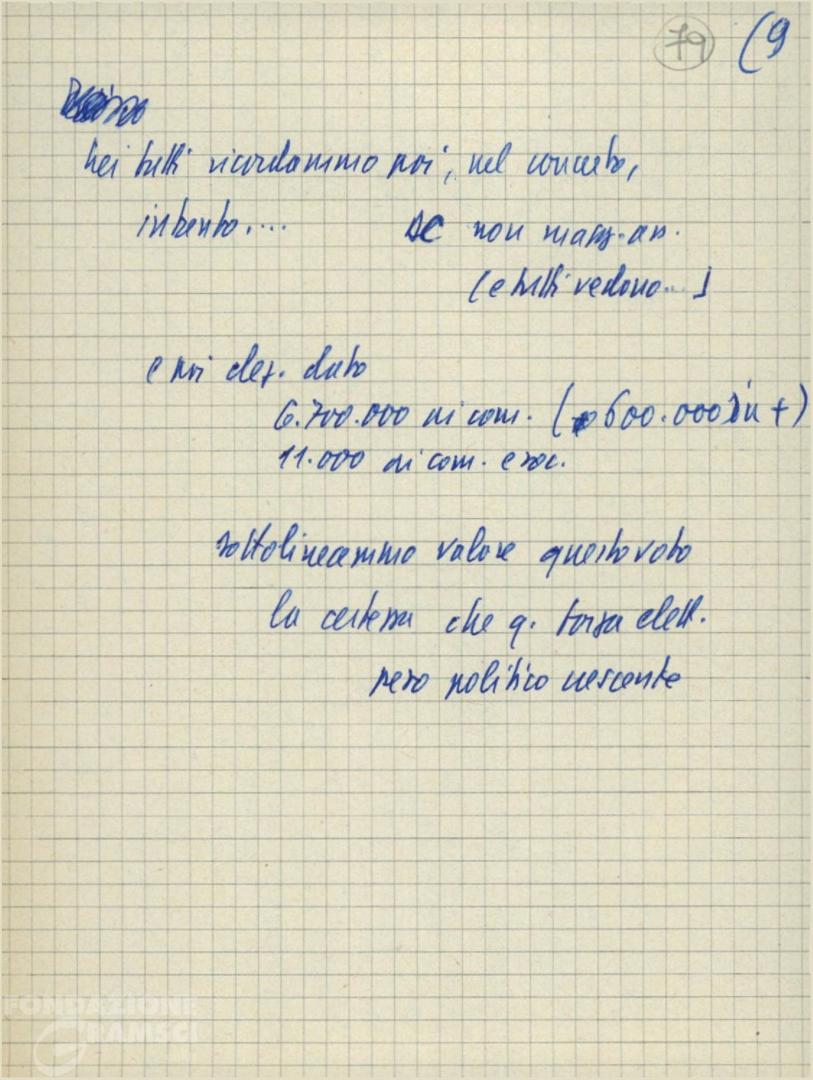 79 (9
Noi tutti ricordammo poi, nel concerto,
intento.... DC non magg. as.
(e tutti vedono...)
e poi def. dato
6.700.000 di com. (600.000 in +)
11.000 di com. e soc.
sottolineammo valore questo voto
la certezza che q. forza elett.
peso politico crescente
FONDAZIONE
GRAMSCI